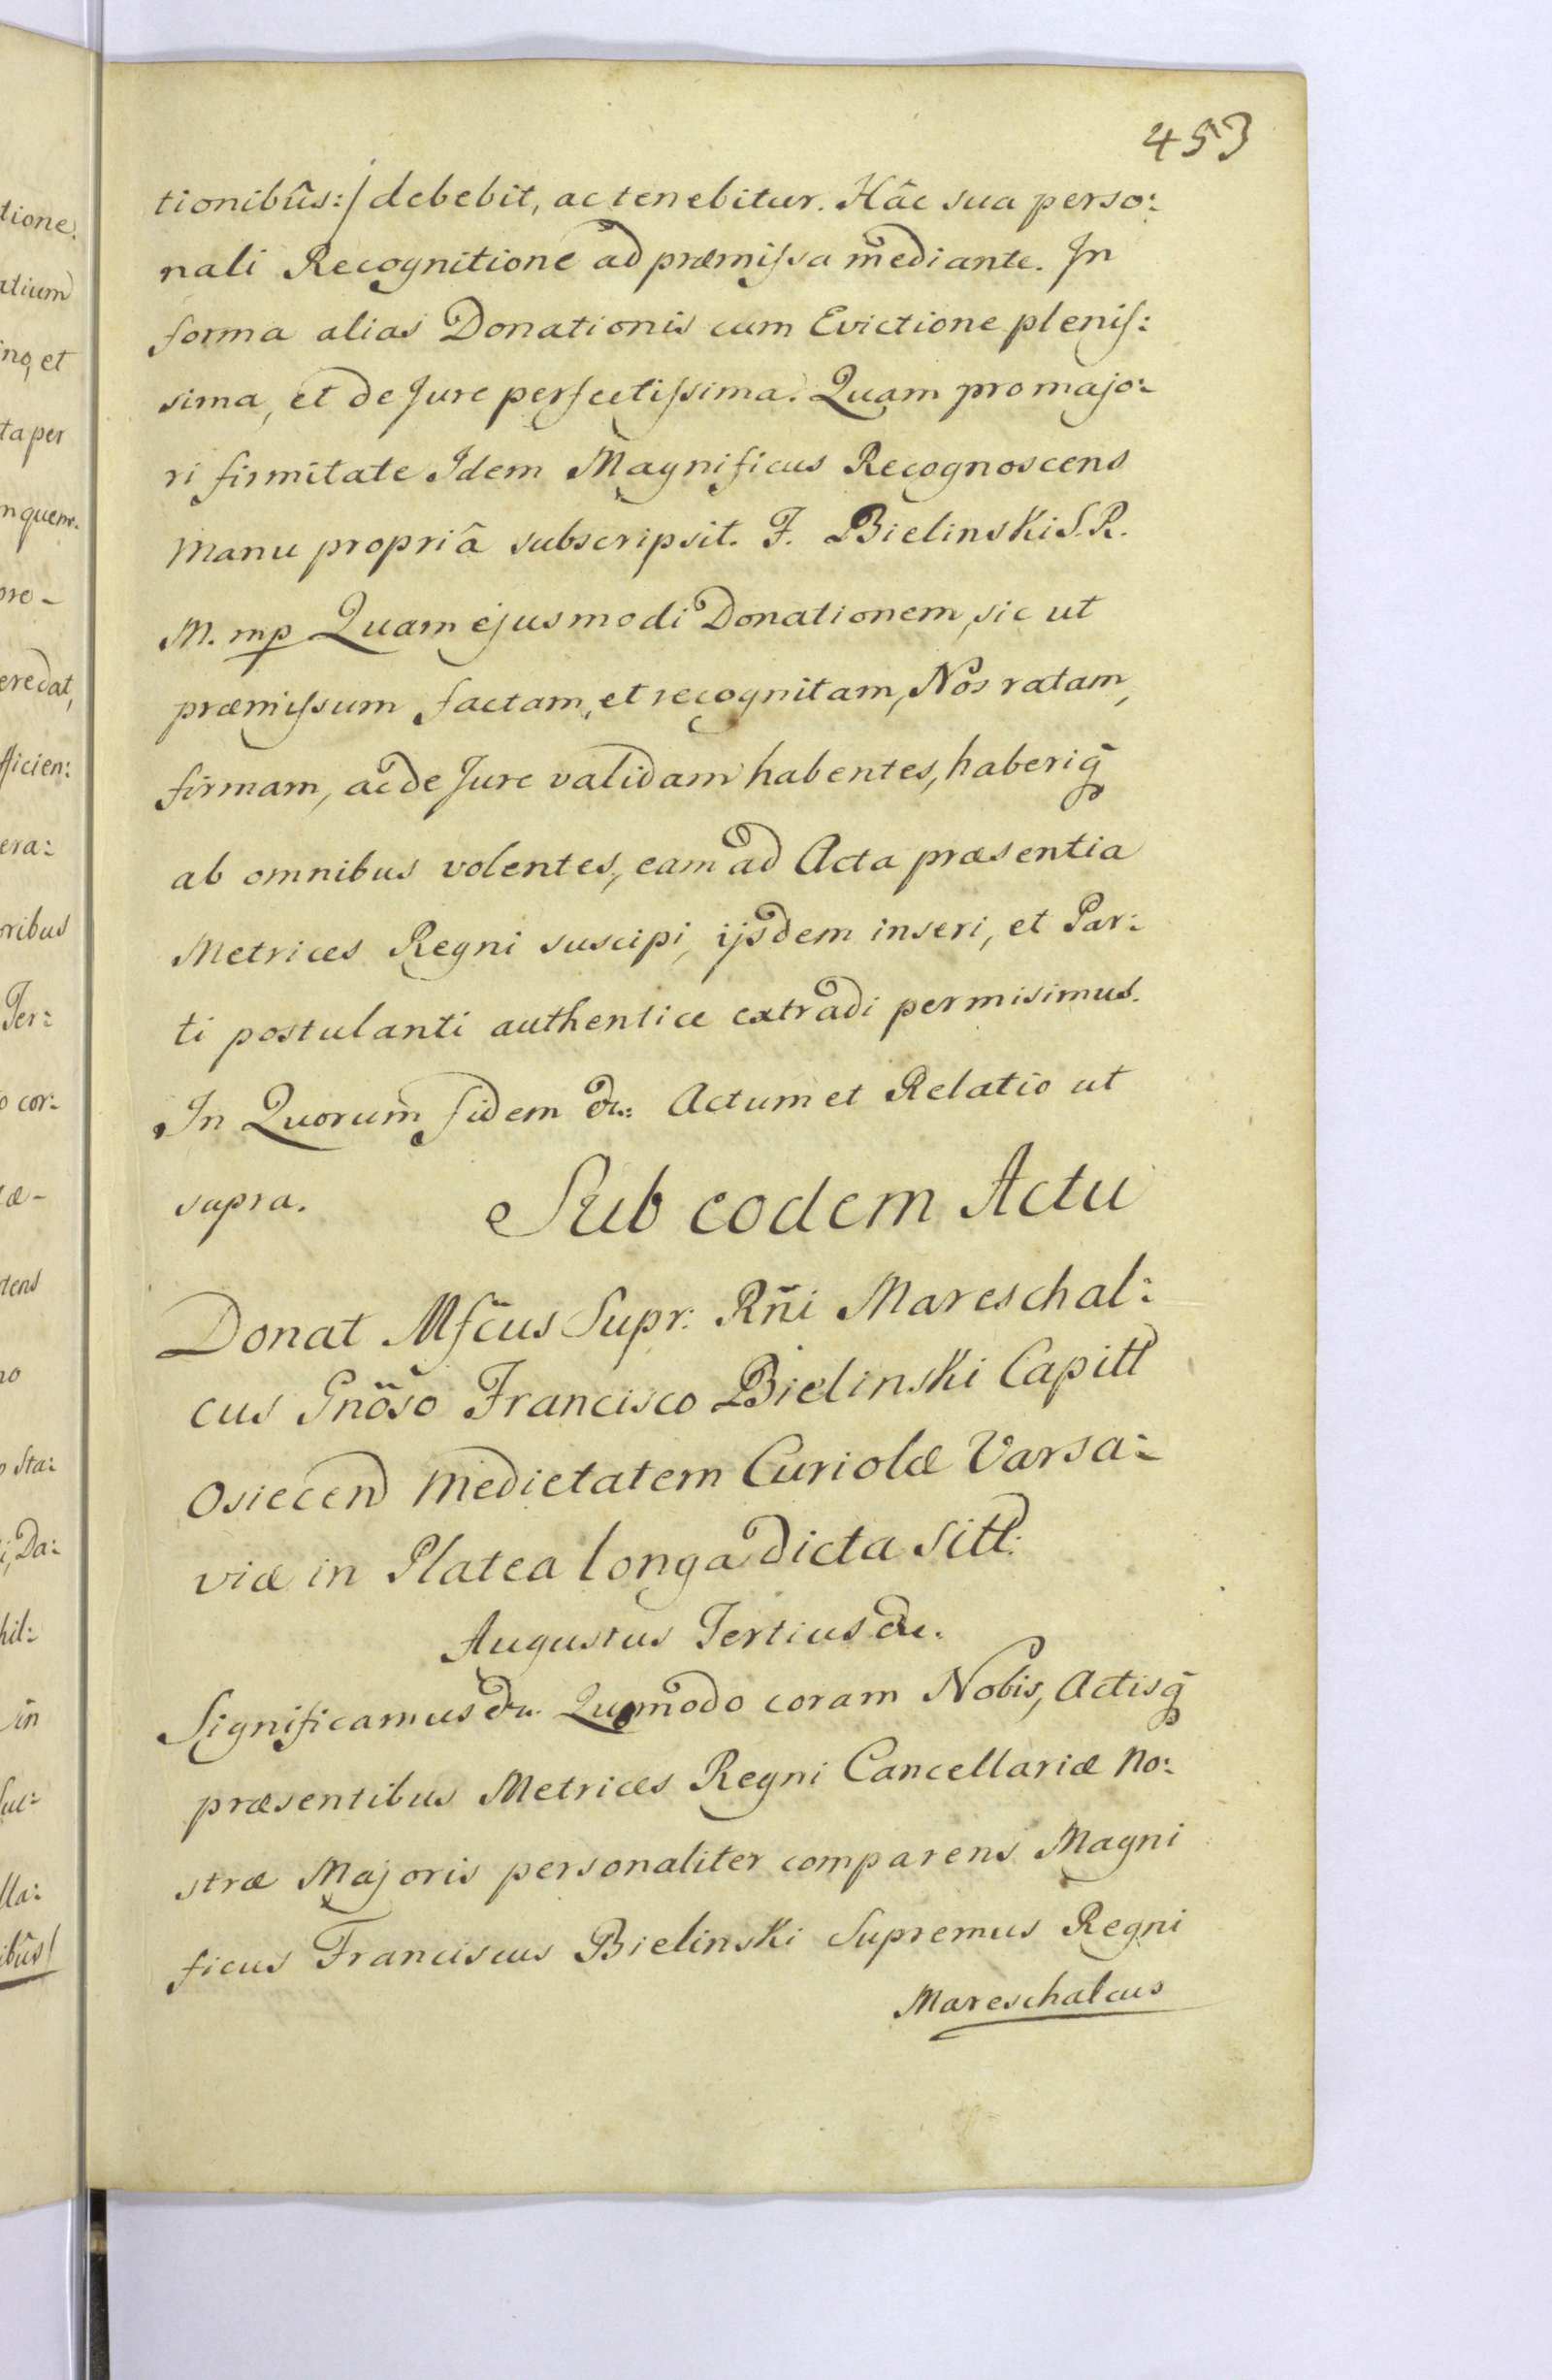 453
tionibûs:/ debebit, ac tenebitur. Hâc sua perso:
nali Recognitione ad præmissa mediante. In
forma alias Donationis cum Evictione plenis:
sima, et de Jure perfectissima. Quam pro majo:
ri firmitate Idem Magnificus Recognoscens
manu propriâ subscripsit. F. Bielinski S. R.
M. mp Quam ejusmodi Donationem, sic ut
præmissum factam, et recognitam, Nos ratam,
firmam, ac de Jure validam habentes, haberiq̃
ab omnibus volentes, eam ad Acta præsentia
Metrices Regni suscipi, ijsdem inseri, et Par:
ti postulanti authentice extradi permisimus.
In Quorum fidem &c: Actum et Relatio ut
supra.
Sub eodem Actu
Donat Mfcus Supr: Rñi Mareschal:
cus Gnõso Francisco Bielinski Capitl
Osiecen Medietatem Curiolæ Varsa:
viæ in Platea longa dicta sitt:
Augustus Tertius &c.
Significamus &c. Quomodo coram Nobis, Actisq̃
præsentibus Metrices Regni Cancellariæ No:
stræ Majoris personaliter comparens Magni
ficus Franciscus Bielinski Supremus Regni
Mareschalcus
tione.
atium
ino, et
ta per
nquem.
pro-
ere dat,
fficien:
era:
oribus
Ter:
o cor:
æ-
tens
no
o Sta:
i, Da:
hil:
in
lla:
ibûs/